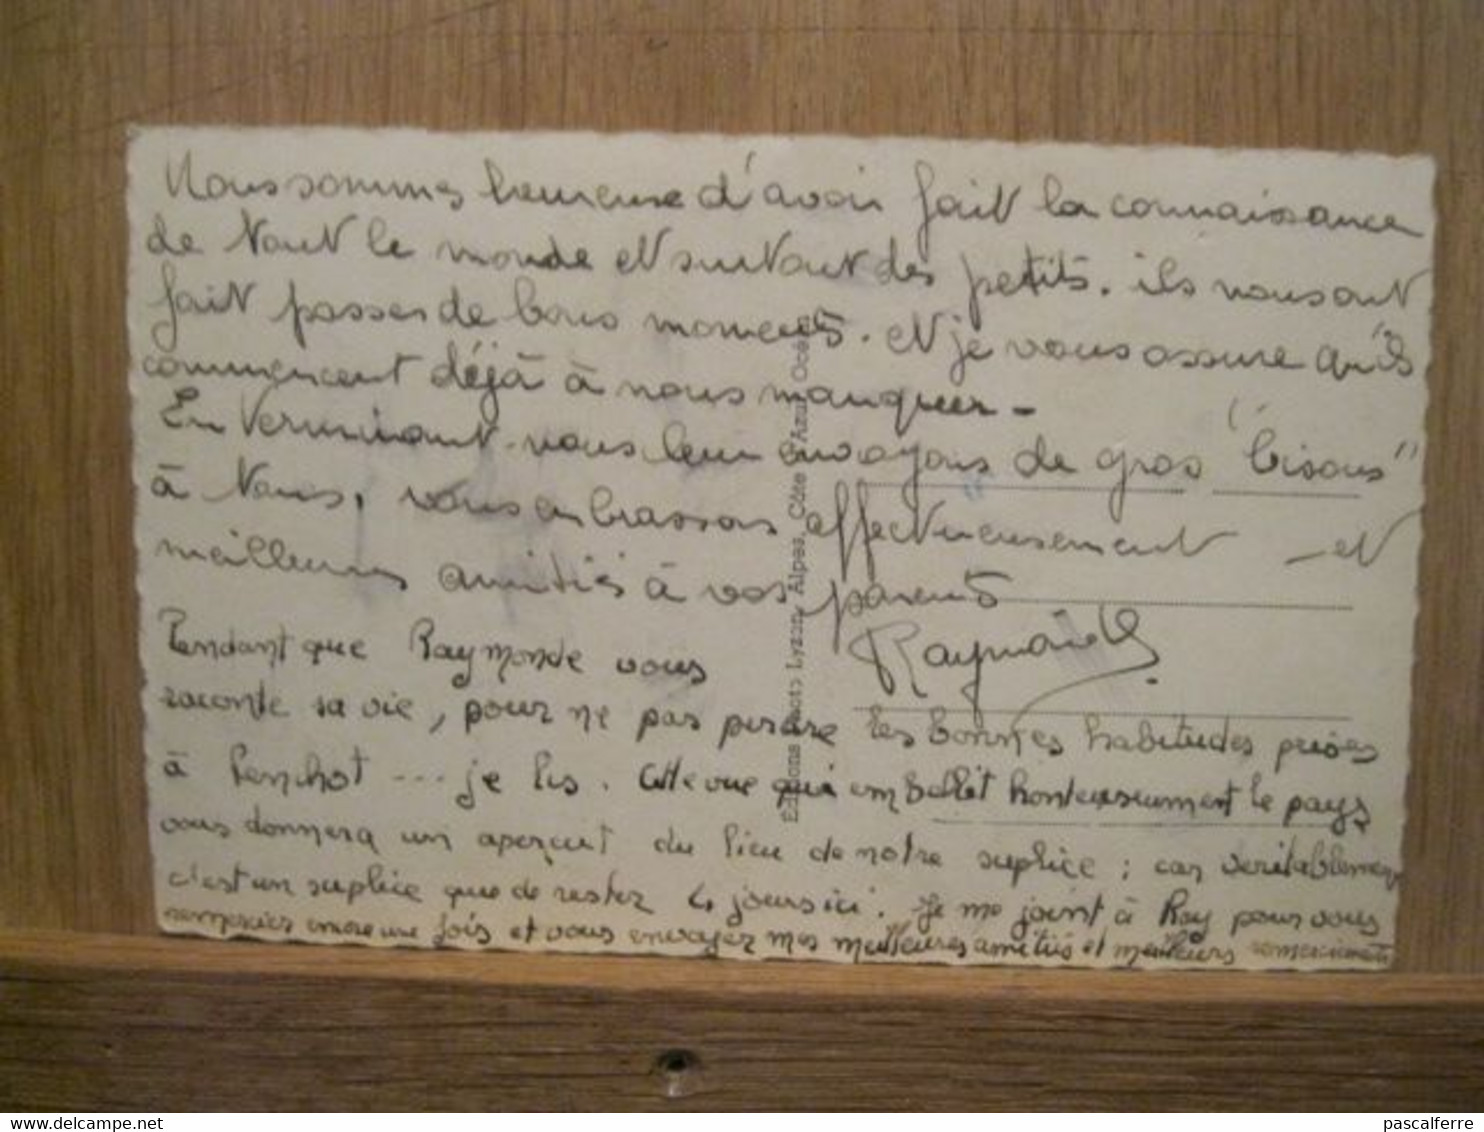 Nous sommes heureuse d'avoir fait la connaissance
de tout le monde et surtout des petits. ils nous ont
fait passer de bons moments. et je vous assure qu'ils
commencent déjà à nous manquer -
En terminant nous leur envoyons de gros "bisous"
à tous, vous embrassons affectueusement - et
meilleures amitiés à vos parents
Raymonde
Pendant que Raymonde vous
raconte sa vie, pour ne pas perdre les bonnes habitudes prises
à Penchot .... je lis. Cette vue qui embellit honteusement le pays
vous donnera un aperçut du lieu de notre suplice ; car veritablement
c'est un suplice que de rester 4 jours ici. Je me joint à Ray pour vous
remercier encore une fois et vous envoyer mes meilleures amitiés et meilleurs remerciements
Éditions Photo Lyzon, Alpes, Côte d'Azur, Océan
pascalferre